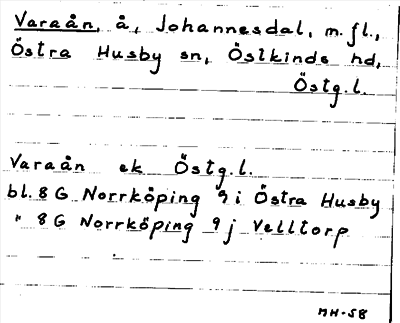 Varaån, å, Johannesdal, m.fl.,
Östra Husby sn, Östkinds hd,
Östg.l.
Varaån ek Östg.l.
bl. 8 G Norrköping 9 i Östra Husby
" 8 G Norrköping 9 j Velltorp
MH-58